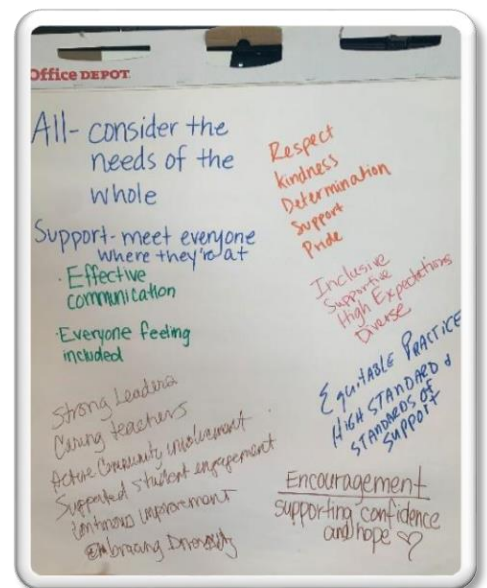 Office DEPOT
All- consider the
needs of the
whole
Support- meet everyone
where they're at
· Effective
communication
· Everyone feeling
included
Strong Leaders
Caring teachers
Active Community involvement
Supported student engagement
Continuous improvement
Embracing Diversity
Respect
Kindness
Determination
Support
Pride
Inclusive
Supportive
High Expectations
Diverse
EQUITABLE PRACTICE
HIGH STANDARD &
STANDARDS OF
SUPPORT
Encouragement
supporting confidence
and hope ♡